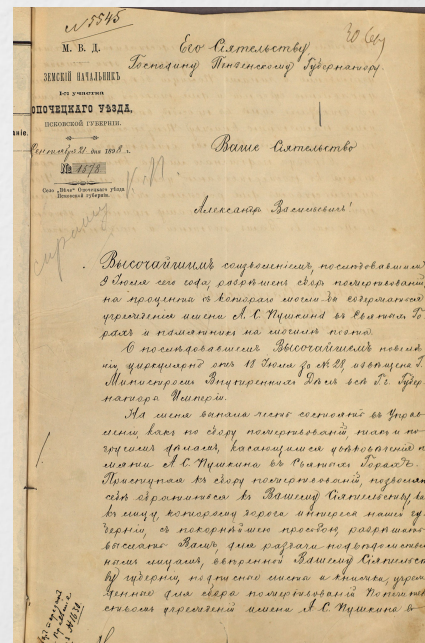 № 5545
М. В. Д.
ЗЕМСКІЙ НАЧАЛЬНИКЪ
1го участка
ОПОЧЕЦКАГО УѢЗДА,
ПСКОВСКОЙ ГУБЕРНІИ.
Сентября 21 дня 1898 г.
№ 1578
Село „Вѣче" Опочецкаго уѣзда
Псковской губерніи.
Его Сіятельству
Господину Пензенскому Губернатору.
Ваше Сіятельство
Александръ Васильевичъ!
ВЫСОЧАЙШИМЪ соизволеніемъ, послѣдовавшимъ
9 Іюля сего года, разрѣшенъ сборъ пожертвованій,
на проценты съ котораго могли-бъ содержаться
учрежденія имени А. С. Пушкина въ Святыхъ Го-
рахъ и памятникъ на могилѣ поэта.
О послѣдовавшемъ ВЫСОЧАЙШЕМЪ повелѣ-
ніи, циркулярно отъ 18 Іюля за № 28, извѣщены Г.
Министромъ Внутреннихъ Дѣлъ всѣ Г.г. Губер-
наторы Имперіи.
На меня выпала честь состоять въ Управ-
леніи, какъ по сбору пожертвованій, такъ и по
другимъ дѣламъ, касающимся увѣковѣченія па
мяти А. С. Пушкина въ Святыхъ Горахъ.
Приступая къ сбору пожертвованій, позволяю
себѣ обратиться къ Вашему Сіятельству, ка
къ лицу, которому дороги интересы нашей гу-
берніи, съ покорнѣйшею просьбою, разрѣшить
выслать Вамъ, для раздачи подвѣдомствен
нымъ лицамъ, ввѣренной Вашему Сіятельст
ву губерніи, подписные листы и книжки, учреж
денные для сбора пожертвованій Попечитель
ствомъ учрежденій имени А. С. Пушкина въ